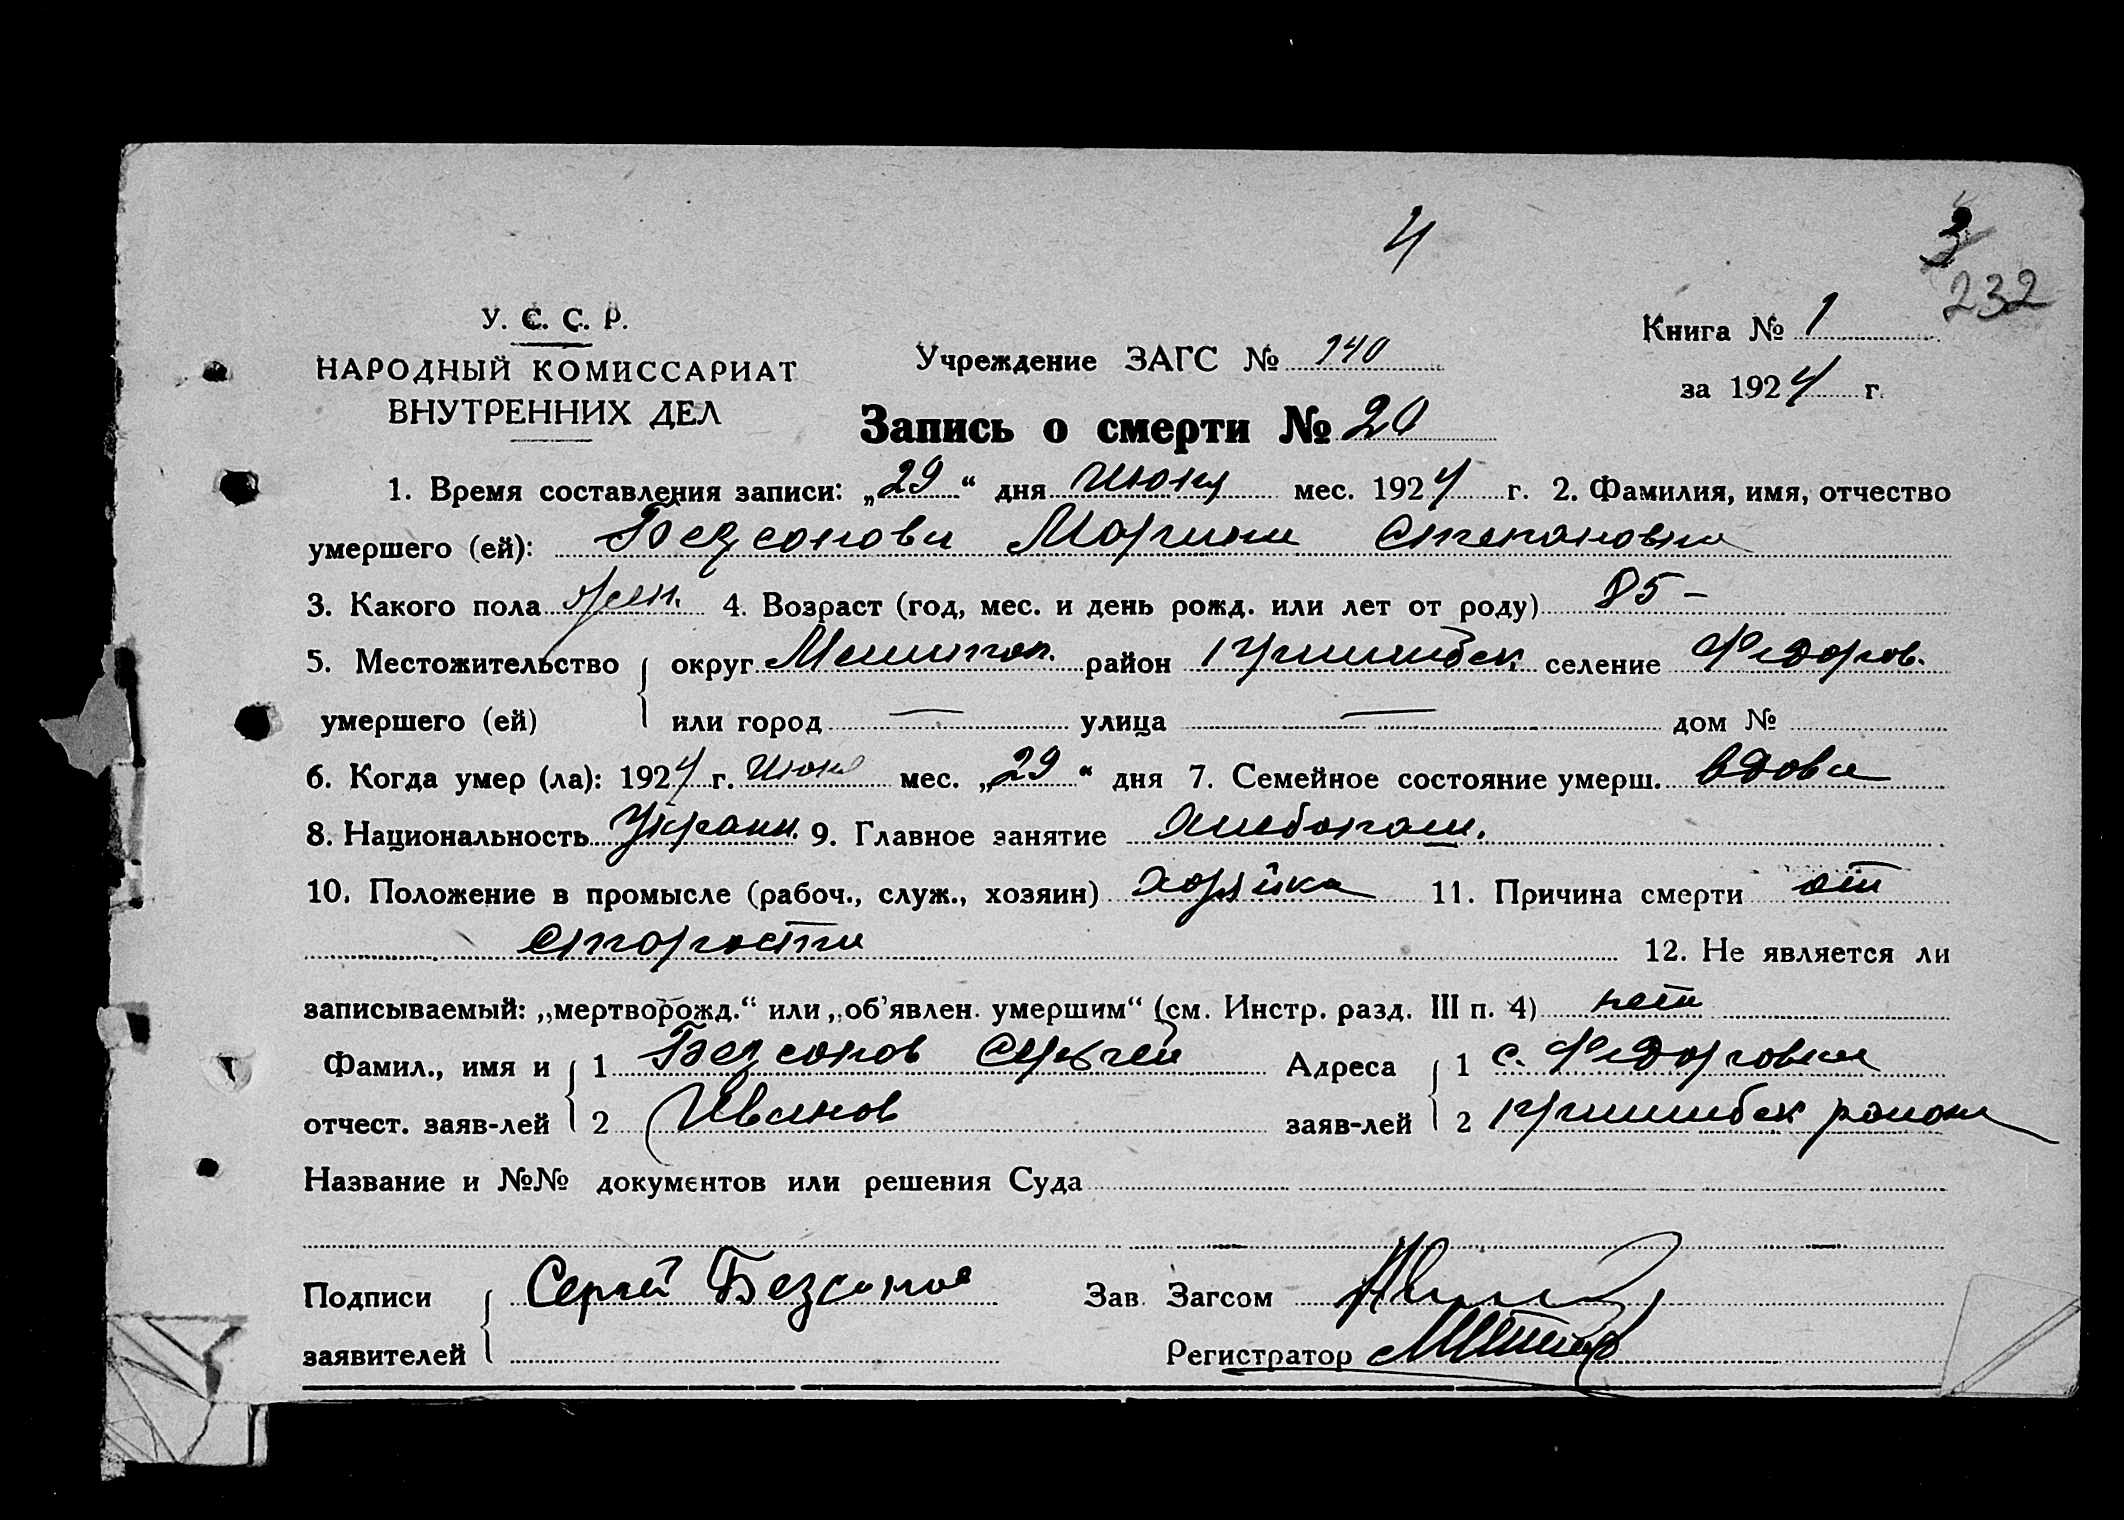 4
3
232
У. С. С. Р.
НАРОДНЫЙ КОМИССАРИАТ
ВНУТРЕННИХ ДЕЛ
Учреждение ЗАГС № 140
Книга № 1
за 1924 г.
Запись о смерти № 20
1. Время составления записи: „29“ дня Июня мес. 1924 г. 2. Фамилия, имя, отчество
умершего (ей): Безсонова Марина Степановна
3. Какого пола жен. 4. Возраст (год, мес. и день рожд. или лет от роду) 85 –
5. Местожительство округ Мелитоп. район Пришибск. селение Федоров.
умершего (ей) или город — улица — дом №
6. Когда умер (ла): 1924 г. Июня мес. „29“ дня 7. Семейное состояние умерш. вдова
8. Национальность Украин. 9. Главное занятие хлебопаш.
10. Положение в промысле (рабоч., служ., хозяин) хозяйка 11. Причина смерти от
старости 12. Не является ли
записываемый: „мертворожд.“ или „об’явлен. умершим“ (см. Инстр. разд. III п. 4) нет
Фамил., имя и 1 Безсонов Сергей Адреса 1 с. Федоровка
отчест. заяв-лей 2 Иванов заяв-лей 2 Пришибск района
Название и №№ документов или решения Суда
Подписи Сергей Безсонов Зав. Загсом
заявителей Регистратор